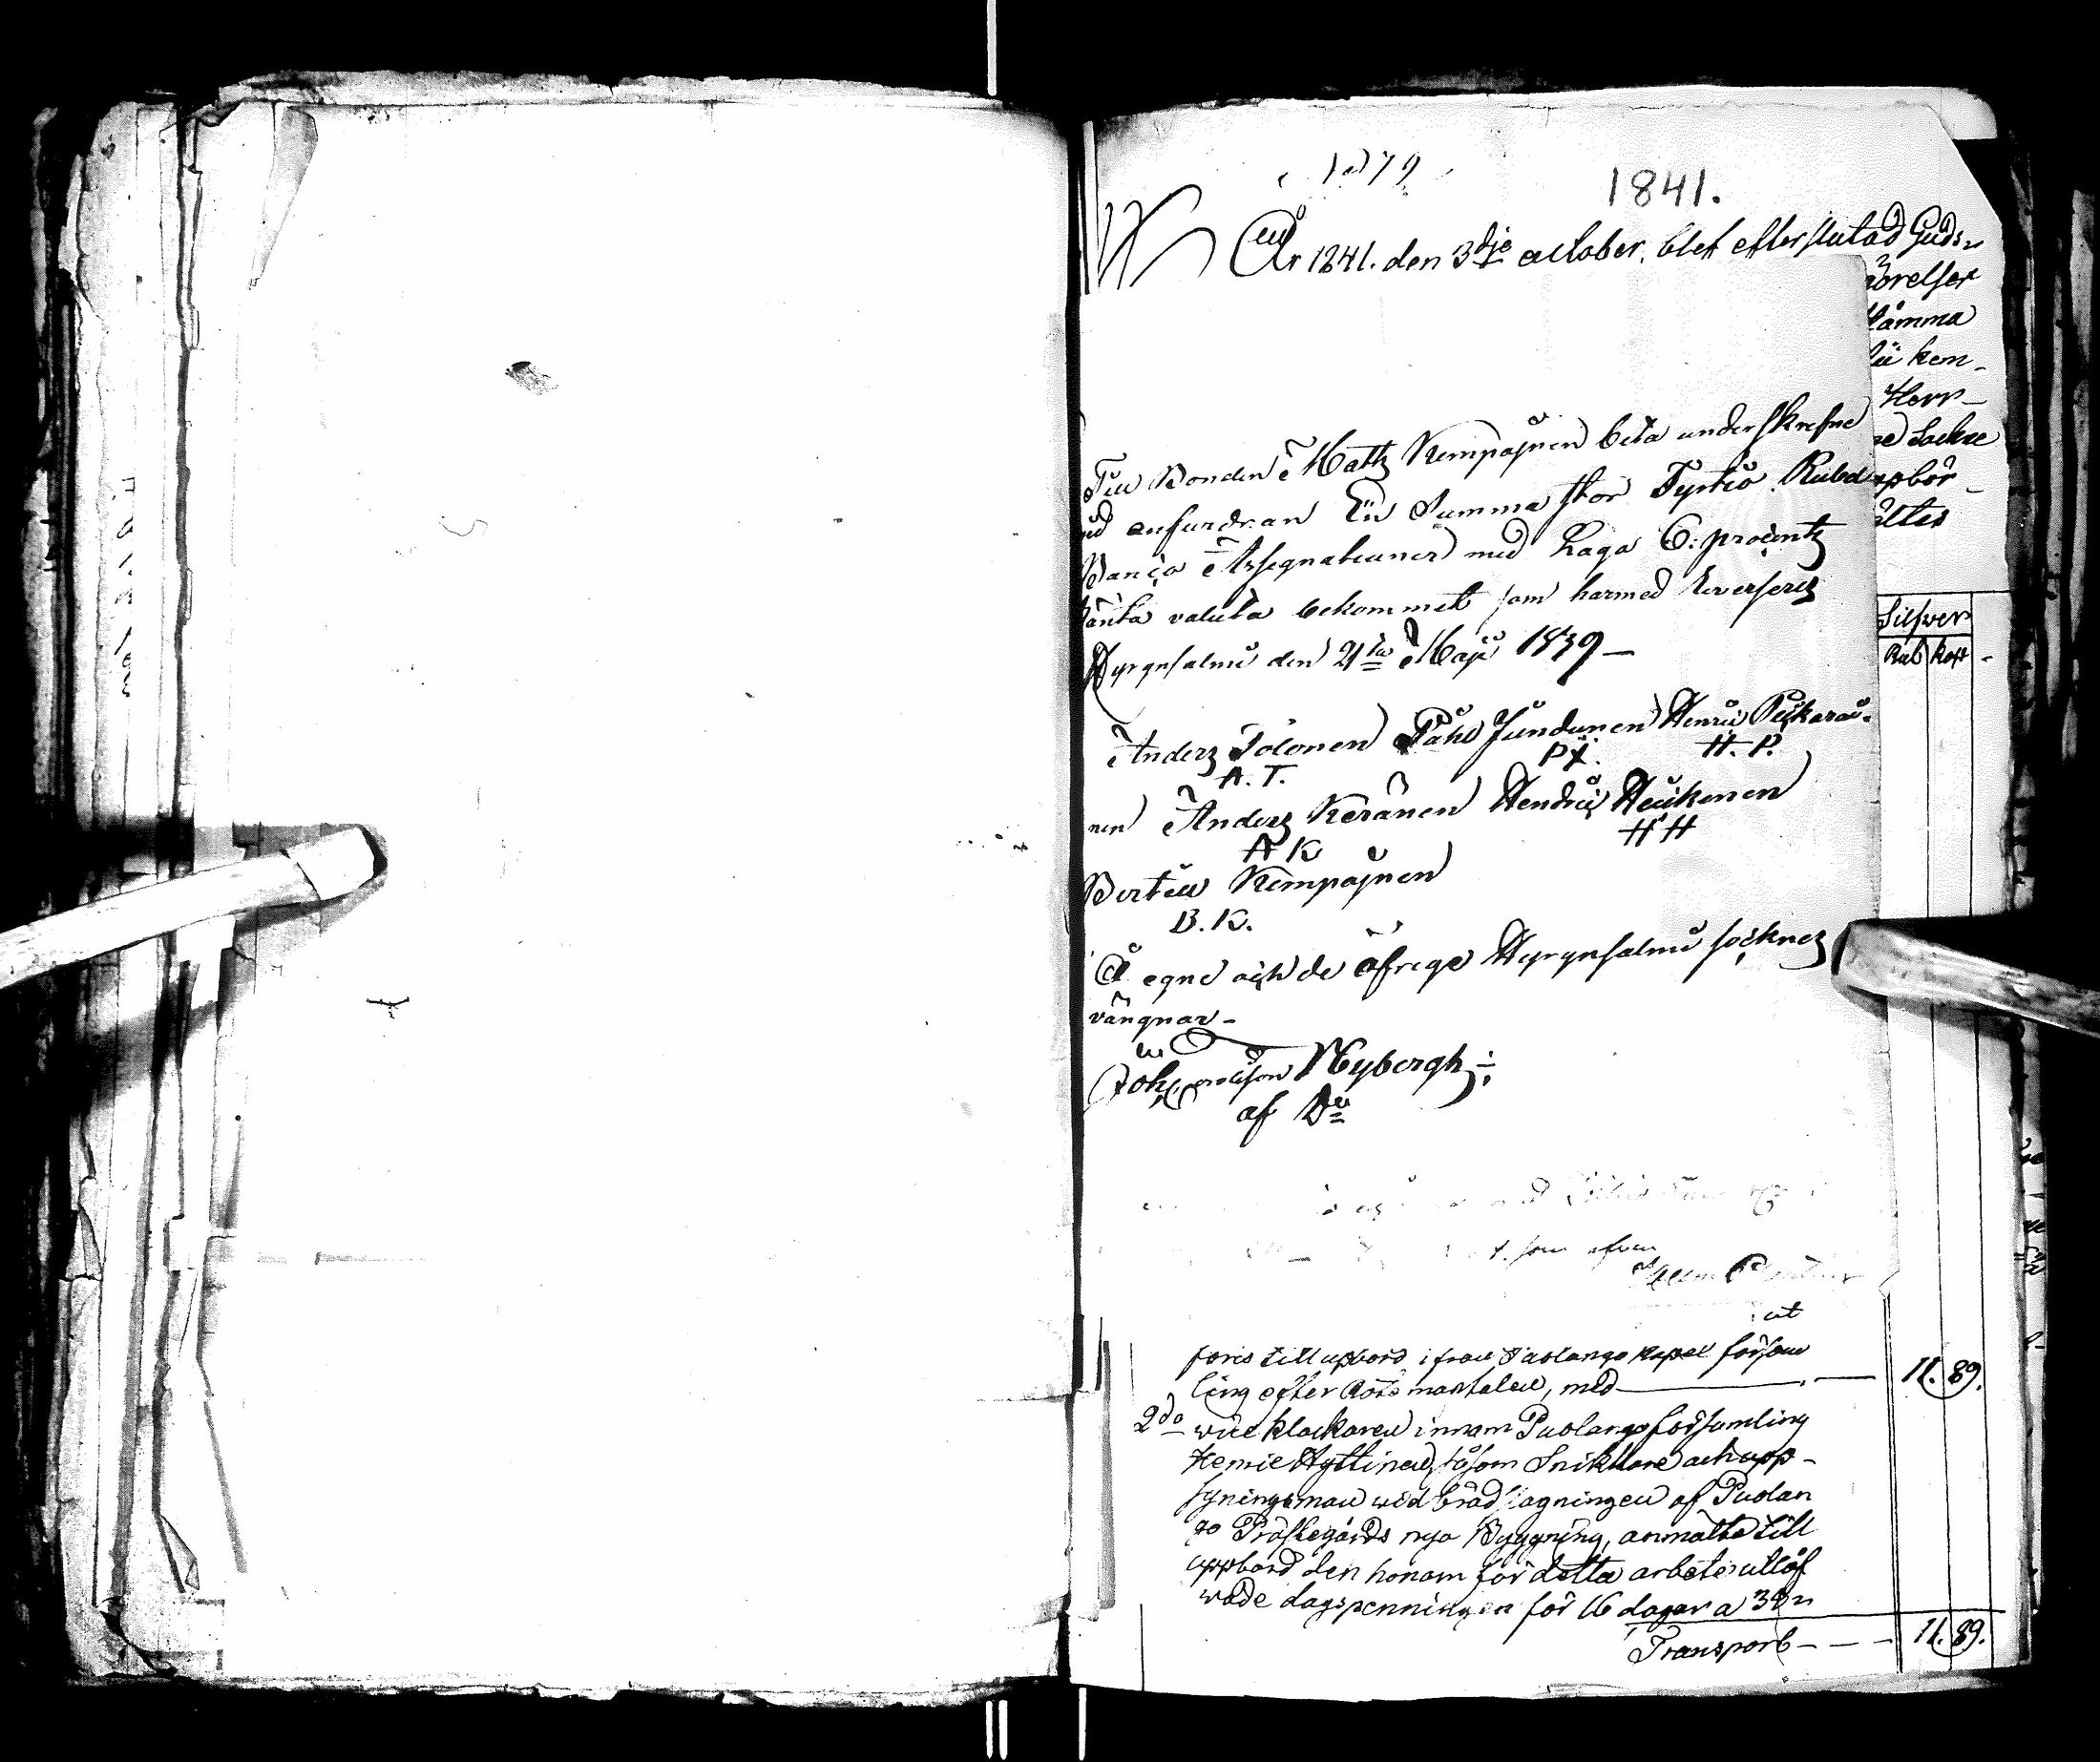 1841.
År 1841. den 3dje october, blef efter slutad Guds-
örelser
tämma
kom-
Herr-
Sockne
pbör-
ältes
Till Bonden Matts Kempajnen beta underskrefne
vid anfordran En Summa stor Fyrtio Rubel
Banco Assegnationer med Laga 6: procents
Ränta valuta bekommet som harmed Reverseras
Hyrynsalmi den 21ta Maji 1839 –
Silfver
Rub Kop
Anders Tolonen Påhl Juntunen Henric Pickarai-
A.T. P.J. H.P.
nen Anders Keränen Hendric Heickenen
A K H H
Bertell Kempajnen
B.K.
Å egne och de öfrige Hyrynsalmi socknes
vängnar –
Joh: Nybergh
af Do
som
at
föres till upbörd ifrån Puolango kapel försam
ling efter röksmantalen, med — 11. 89.
2do vice klockaren innom Puolango församling
Henric Hyttinen, såsom Snikkare och upp-
syningsman wid brädsagningen af Puolan
go Prästegårds nya Byggning, anmälte till
uppbörd den honom för detta arbete utlöf
wade dagspenningen för 16 dagar a
Transport – – – 11. 89.